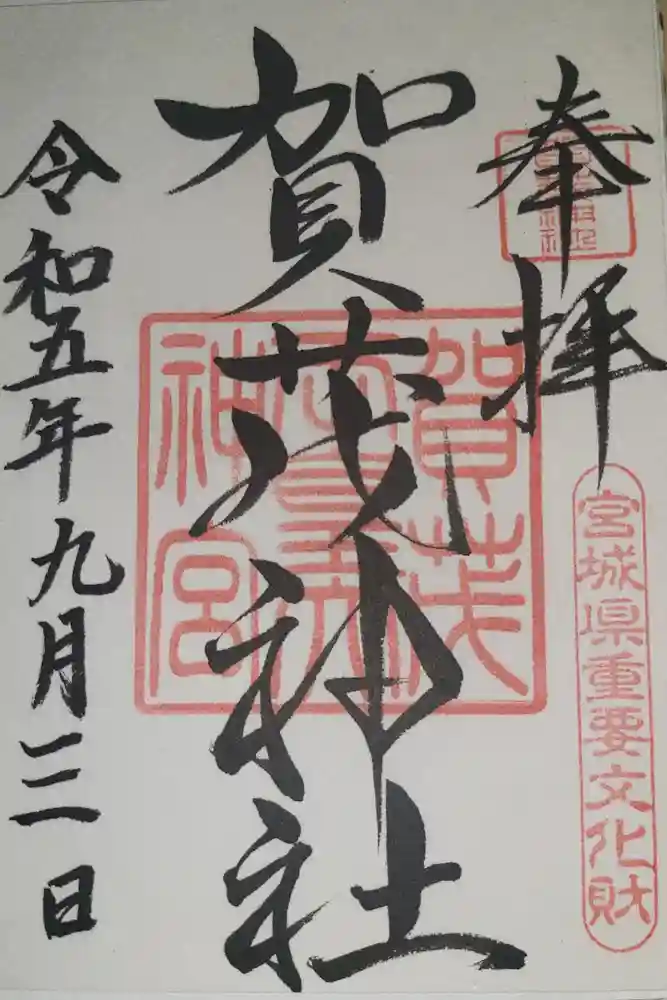 奉拝
宮城県重要文化財
賀茂神社
賀茂
神宮
令和五年九月三日